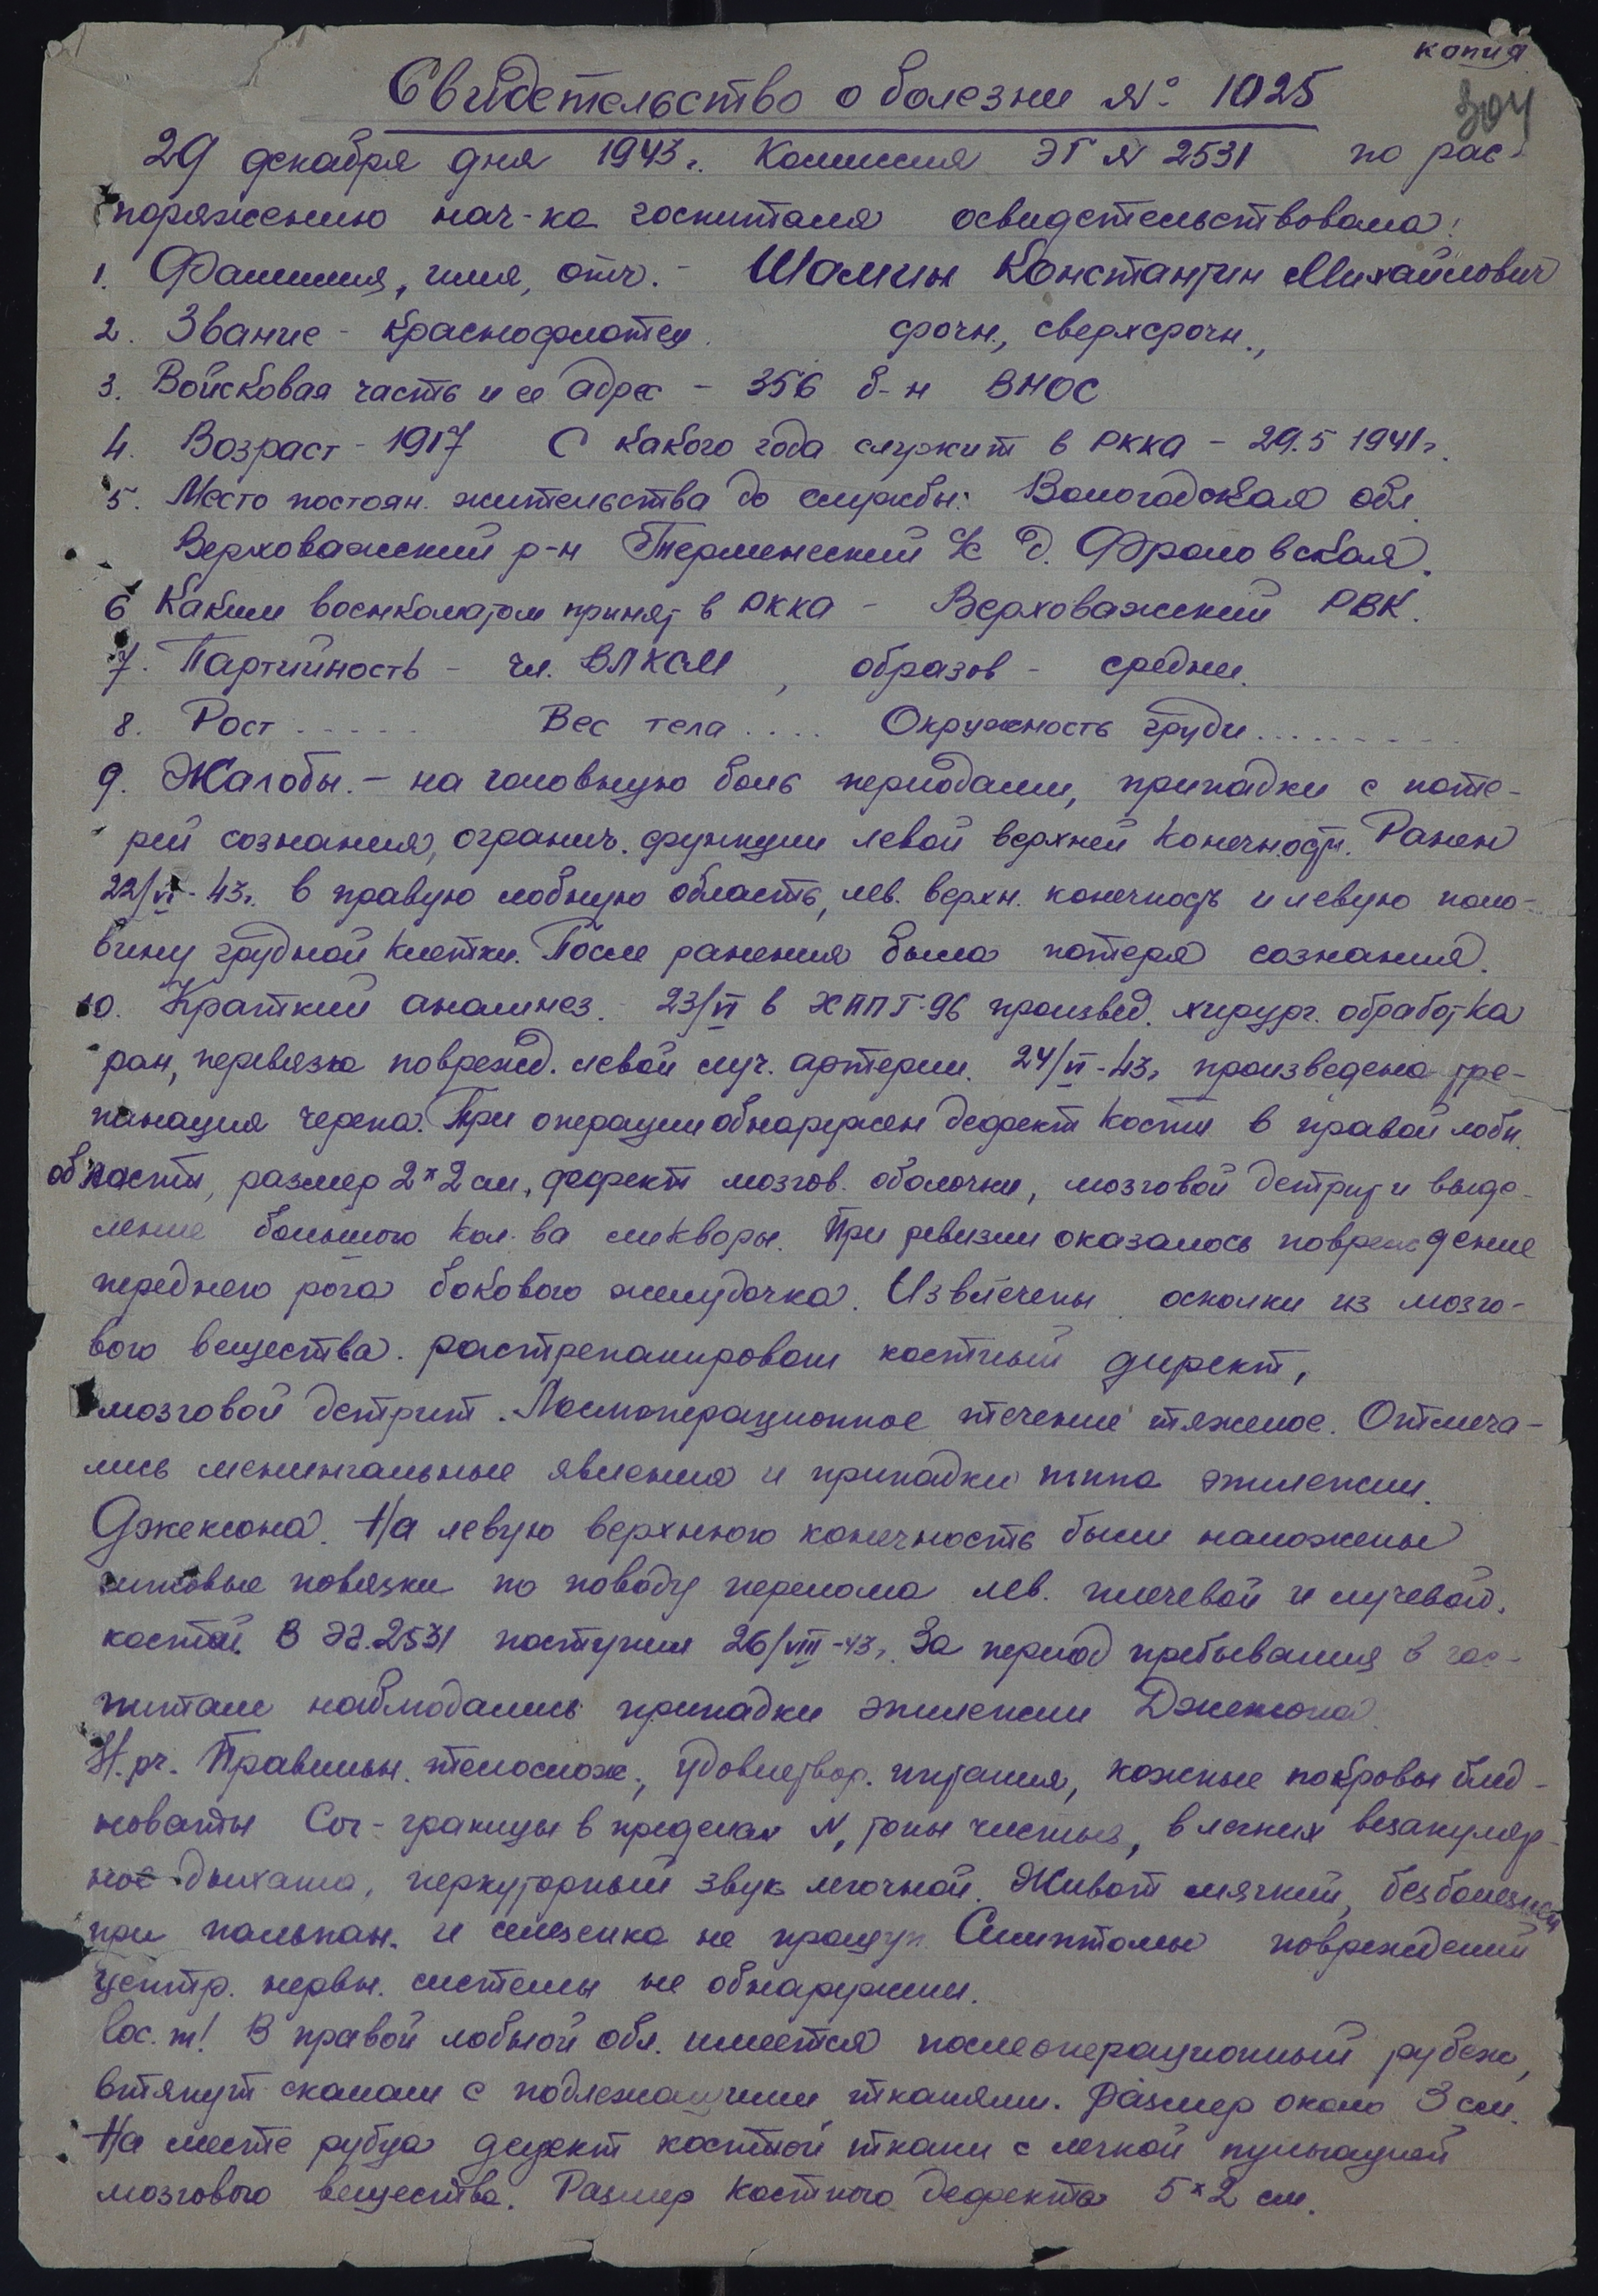 копия
Свидетельство о болезни № 1025
304
29 декабря дня 1943 г. Комиссия ЭГ № 2531 по рас-
поряжению нач-ка госпиталя освидетельствовала:
1. Фамилия, имя, отч. - Шамин Константин Михайлович
2. Звание - краснофлотец. срочн., сверхсрочн.,
3. Войсковая часть и ее адрес - 356 б-н ВНОС
4. Возраст - 1917 С какого года служит в РККА - 29.5 1941 г.
5. Место постоян. жительства до службы: Вологодская обл.
Верховажский р-н Терменгский с/с д. Фроловская.
6 Каким военкоматом принят в РККА - Верховажский РВК.
7. Партийность - чл. ВЛКСМ, образов - средн.
8. Рост ..... Вес тела .... Окружность груди .........
9. Жалобы. - на головную боль периодами, припадки с поте-
рей сознания, огранич. функции левой верхней конечности. Ранен
22/VI - 43 г. в правую лобную область, лев. верхн. конечность и левую поло-
вину грудной клетки. После ранения была потеря сознания.
10. Краткий анамнез. 23/VI в ХППГ-96 произвед. хирург. обработка
ран, перевязка поврежд. левой луч. артерии. 24/VI - 43 г. произведена тре-
панация черепа. При операции обнаружен дефект кости в правой лобн.
области, размер 2 х 2 см., дефект мозгов. оболочки, мозговой детрит и выде-
ление большого кол-ва ликворы. При ревизии оказалось повреждение
переднего рога бокового желудочка. Извлечены осколки из мозго-
вого вещества. растрепанирован костный дефект,
мозговой детрит. Послеоперационное течение тяжелое. Отмеча-
лись менингальные явления и припадки типа эпилепсии.
Джексона. На левую верхнюю конечность были наложены
гипсовые повязки по поводу перелома лев. плечевой и лучевой.
костей. В ЭГ.2531 поступил 26/VIII - 43 г. За период пребывания в гос-
питале наблюдались припадки эпилепсии Джексона.
Н. рг. Правильн. телослож., удовлетвор. питания, кожные покровы блед-
новаты Cor - границы в пределах N, тоны чистые, в легких везикуляр-
ное дыхание, перкуторный звук легочной. Живот мягкий, безболезнен
при пальпац. и селезенка не прощуп. Симптомы повреждений
центр. нервн. системы не обнаружили.
loc. st! В правой лобной обл. имеется послеоперационный рубец,
втянут спаян с подлежащими тканями. Размер около 3 см.
На месте рубца дефект костной ткани с легкой пульсацией
мозгового вещества. Размер костного дефекта 5 х 2 см.